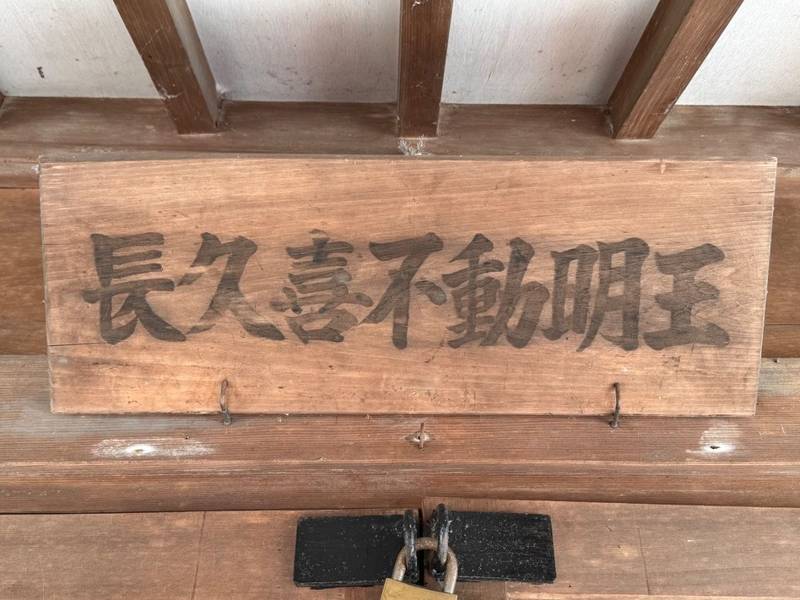 長久喜不動明王